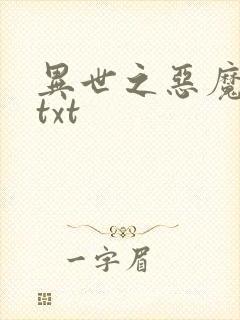 異世之惡魔
txt
一字眉